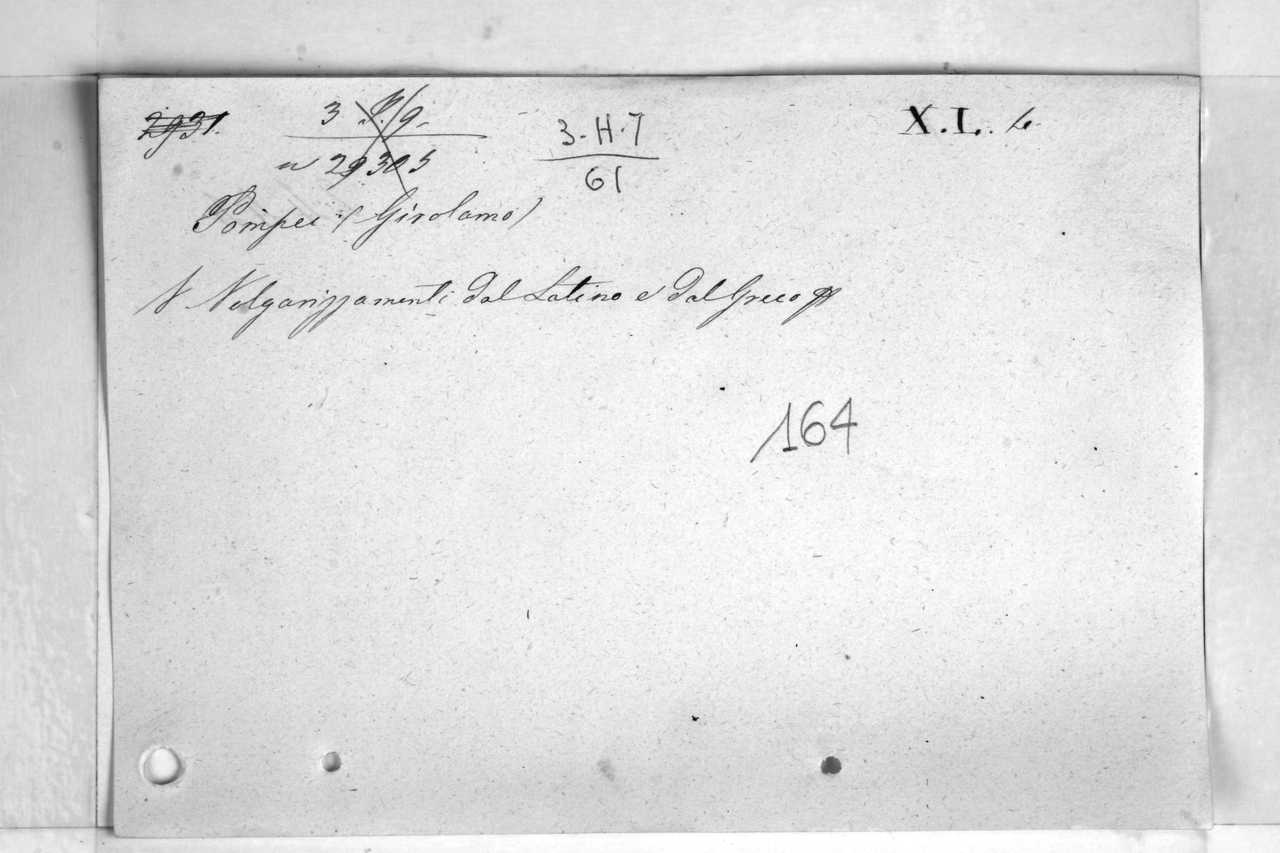 2931. 3 9. 3-H-7 X.L. L.
n 29305 61
Pompei (Girolamo)
Volgarizzamenti dal Latino e dal Greco
164